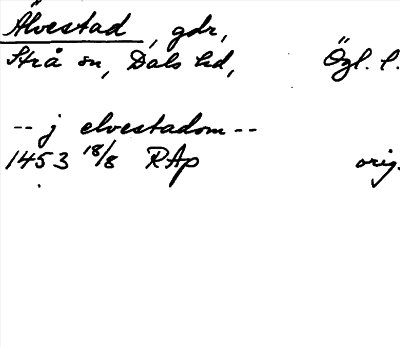 Älvestad, gdr,
Strå sn, Dals hd, Ögl. l.
-- j elvestadom --
1453 18/8 RAp orig.